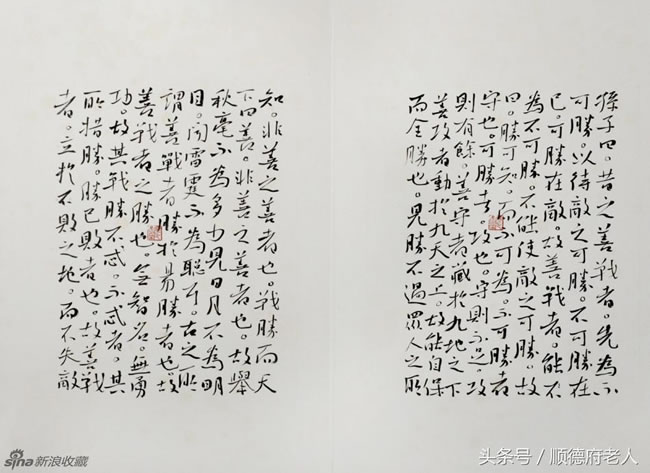 孫子曰。昔之善戰者。先為不
可勝。以待敵之可勝。不可勝在
己。可勝在敵。故善戰者。能不
為不可勝。不能使敵之可勝。故
曰。勝可知。而不可為。不可勝者
守也。可勝者。攻也。守則不足。攻
則有餘。善守者藏於九地之下
善攻者動於九天之上。故能自保
而全勝也。見勝不過眾人之所
知。非善之善者也。戰勝而天
下曰善。非善之善者也。故舉
秋毫不為多力見日月不為明
目。聞雷霆不為聰耳。古之所
謂善戰者。勝於易勝者也。故
善戰者之勝也。無智名。無勇
功。故其戰勝不忒。不忒者。其
所措勝。勝已敗者也。故善戰
者。立於不敗之地。而不失敵
sina 新浪收藏
头条号/顺德府老人